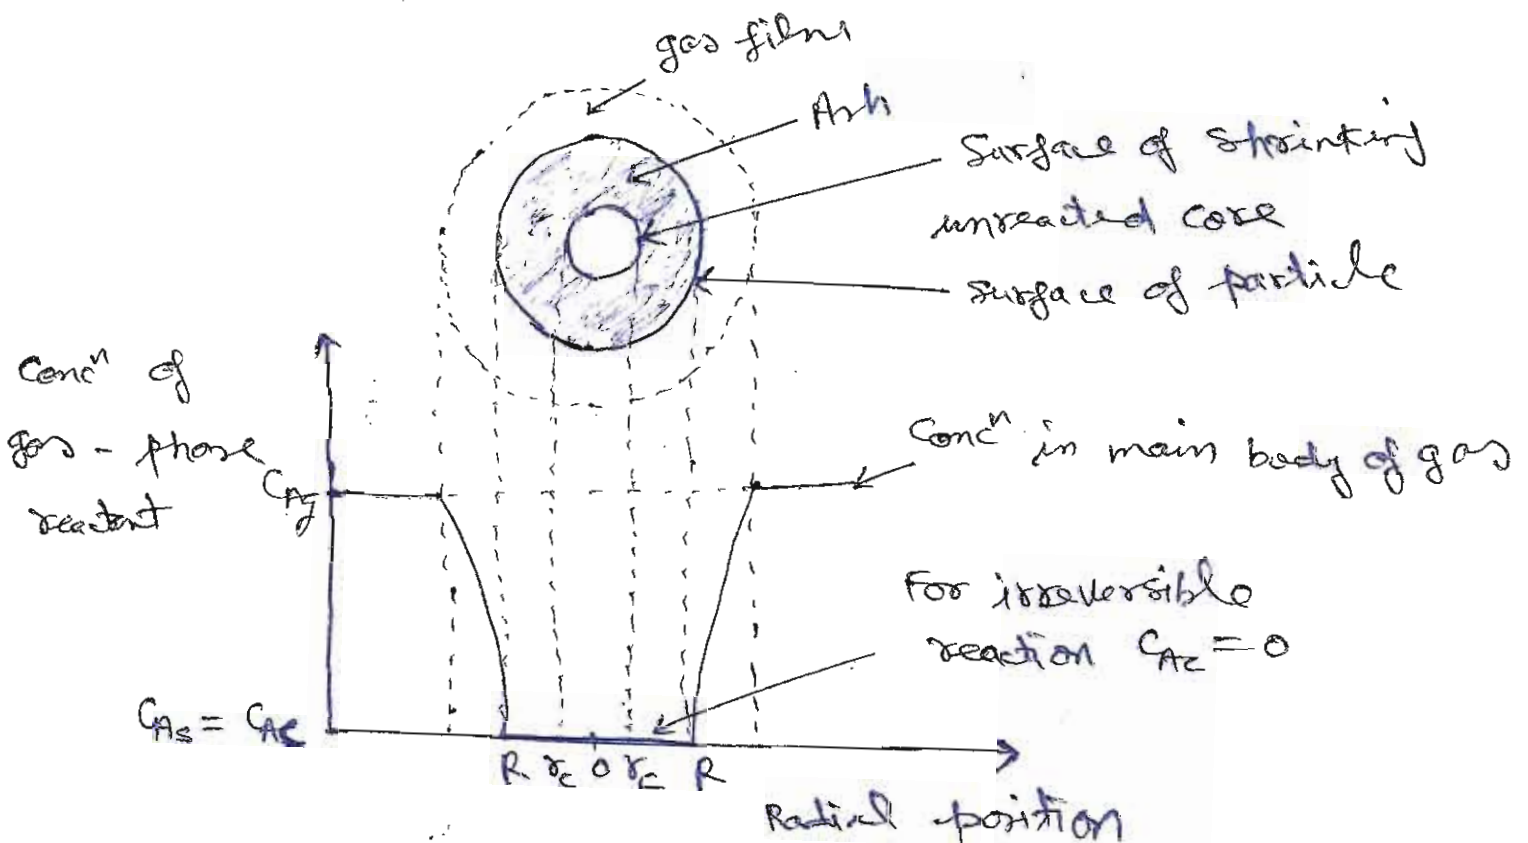 gas film
Ash
Surface of shrinking
unreacted core
surface of particle
Concⁿ of
gas - phase
reactant
C_Ag
Concⁿ in main body of gas
For irreversible
reaction C_Ac = 0
C_As = C_Ac
R r_c 0 r_c R
Radial position